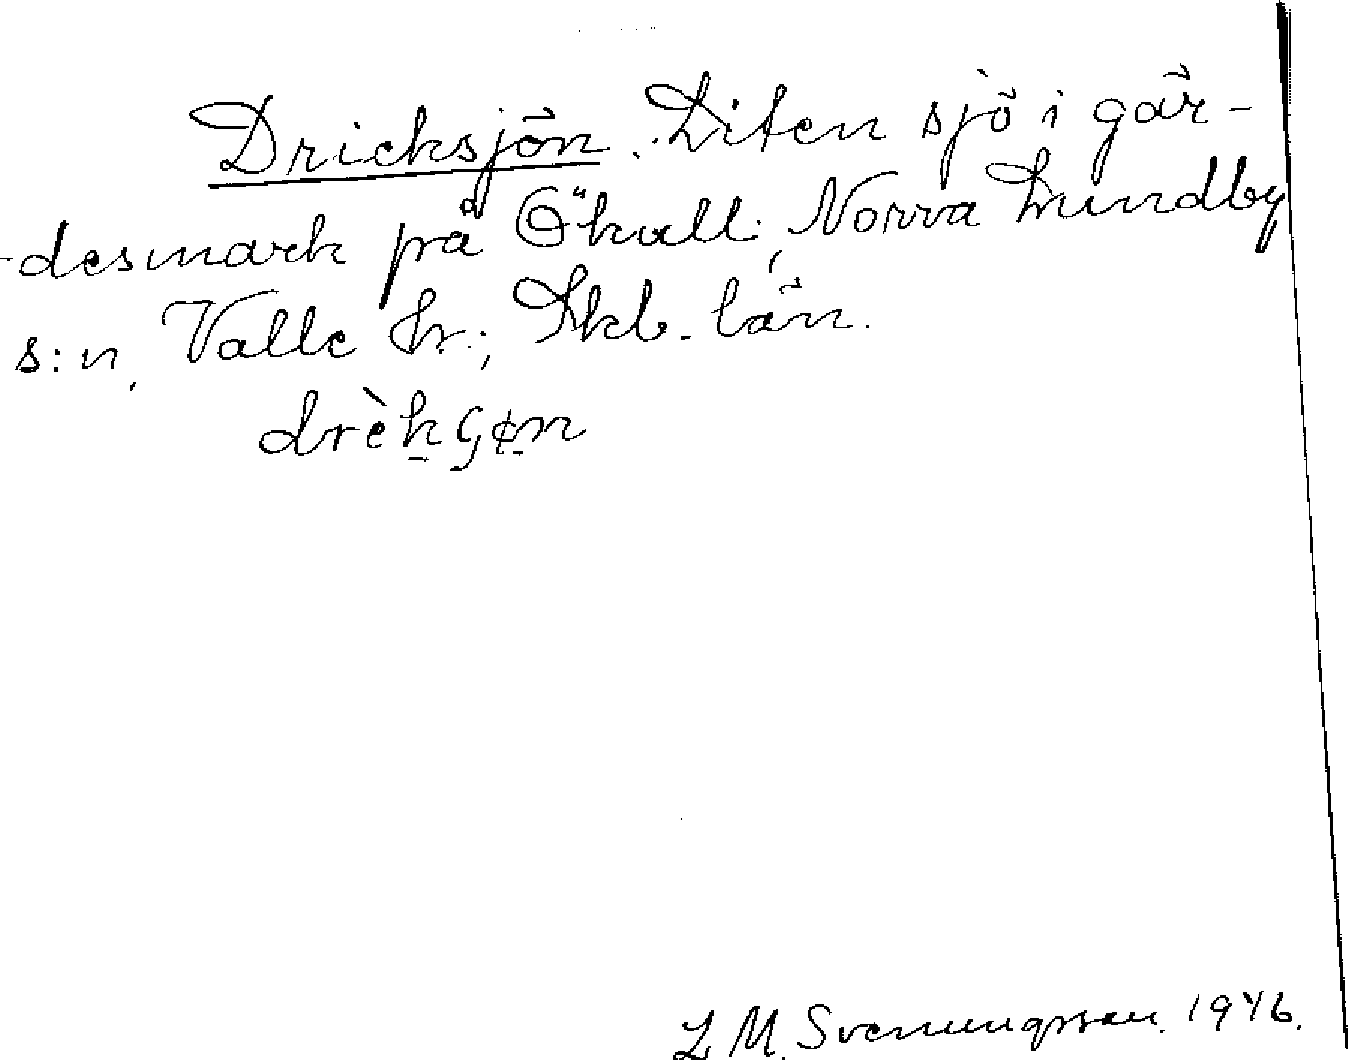 Dricksjön. Liten sjö i gär-
desmark på Ökull, Norra Lundby
s:n, Valle hr.; Skb. län.
drèkςøn
L M. Svenungsson. 1946.